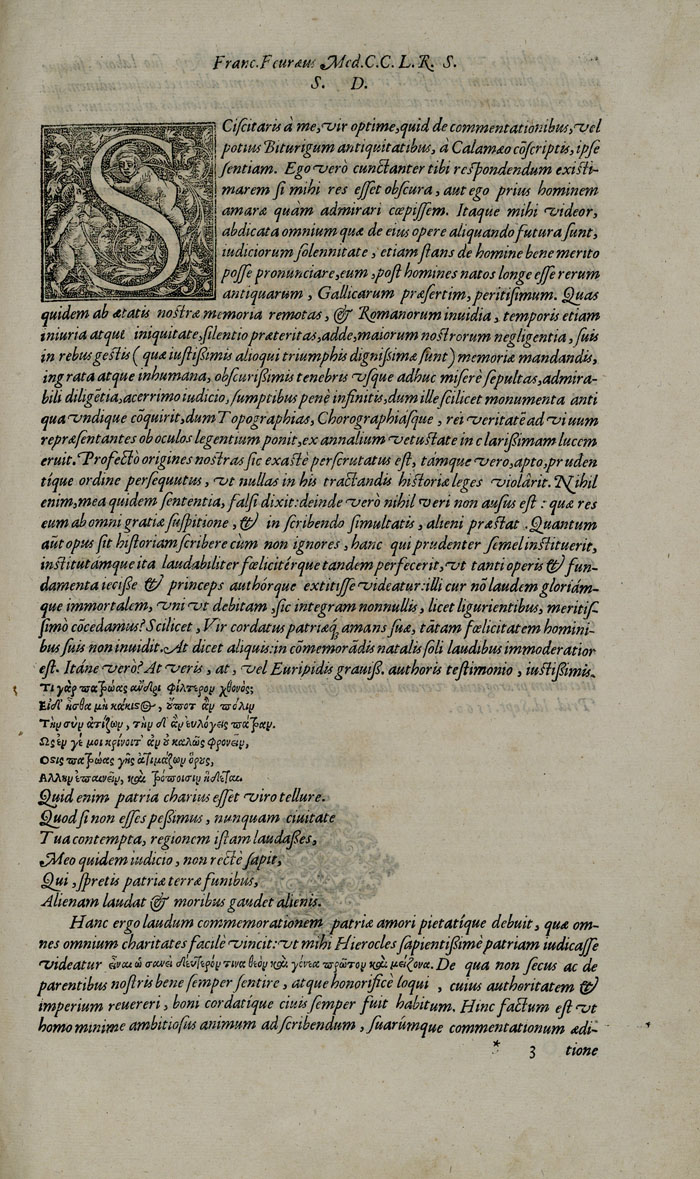 Franc. Feuræus Med. C. C. L. R. S.
S. D.
SCiſcitaris à me, vir optime, quid de commentationibus, vel
potius Biturigum antiquitatibus, à Calamæo cõſcriptis, ipſe
ſentiam. Ego verò cunctanter tibi reſpondendum exiſti-
marem ſi mihi res eſſet obſcura, aut ego prius hominem
amaræ quàm admirari cœpiſſem. Itaque mihi videor,
abdicata omnium quæ de eius opere aliquando futura ſunt,
iudiciorum ſolennitate, etiam ſtans de homine bene merito
poſſe pronunciare, eum, poſt homines natos longe eſſe rerum
antiquarum, Gallicarum præſertim, peritiſimum. Quas
quidem ab ætatis noſtræ memoria remotas, & Romanorum inuidia, temporis etiam
iniuria atque iniquitate, ſilentio præteritas, adde, maiorum noſtrorum negligentia, ſuis
in rebus geſtis (quæ iuſtiſſimis alioqui triumphis digniſſimæ ſunt) memoriæ mandandis,
ingrata atque inhumana, obſcuriſſimis tenebris vſque adhuc miſerè ſepultas, admira-
bili diligẽtia, acerrimo iudicio, ſumptibus penè infinitis, dum ille ſcilicet monumenta anti
qua vndique cõquirit, dum Topographias, Chorographiáſque, rei veritatẽ ad viuum
repræſentantes ob oculos legentium ponit, ex annalium vetuſtate in clariſſimam lucem
eruit. Profectò origines noſtras ſic exactè perſcrutatus eſt, támque vero, apto, pruden
tíque ordine perſequutus, vt nullas in his tractandis hiſtoriæ leges violârit. Nihil
enim, mea quidem ſententia, falſi dixit: deinde verò nihil veri non auſus eſt: quæ res
eum ab omni gratiæ ſuſpitione, & in ſcribendo ſimultatis, alieni præſtat. Quantum
aũt opus ſit hiſtoriam ſcribere cùm non ignores, hanc qui prudenter ſemel inſtituerit,
inſtitutamque ita laudabiliter fœlicitérque tandem perfecerit, vt tanti operis & fun-
damenta ieciſſe & princeps authórque extitiſſe videatur: illi cur nõ laudem gloriám-
que immortalem, vni vt debitam, ſic integram nonnullis, licet ligurientibus, meritiſ-
ſimò cõcedamus? Scilicet, Vir cordatus patriæq́ amans ſuæ, tãtam fœlicitatem homini-
bus ſuis non inuidit. At dicet aliquis: in cõmemorãdis natalis ſoli laudibus immoderatior
eſt. Itáne verò? At veris, at, vel Euripidis grauiſſ. authoris teſtimonio, iuſtiſſimis.
Τι γὰρ πατρώας ανδρὶ φίλτερον χθονός;
Εἰ δ' ἦσθα μὴ κάκιστος, οὔποτ' ἂν πόλιν
Τὴν σὺν ἀτίζων, τὴν δ' ἂν ευλόγεις πάτραν.
Ως ἐν γέ μοι κρίνοιτ' ἂν ὀ καλῶς φρονεῖν,
Οςις πατρώας γῆς ἀτιμάζων ὅρους,
Αλλην ἐπαινεῖν, καὶ τρόποισιν ἥδεται.
Quid enim patria charius eſſet viro tellure.
Quod ſi non eſſes peſſimus, nunquam ciuitate
Tua contempta, regionem iſtam laudaſſes,
Meo quidem iudicio, non rectè ſapit,
Qui, ſpretis patriæ terræ funibus,
Alienam laudat & moribus gaudet alienis.
Hanc ergo laudum commemorationem patriæ amori pietatíque debuit, quæ om-
nes omnium charitates facilè vincit: vt mihi Hierocles ſapientiſſimè patriam iudicaſſe
videatur δεύτερόν τινα θεὸν καὶ γόνεα πρῶτον καὶ μείζονα. De qua non ſecus ac de
parentibus noſtris bene ſemper ſentire, atque honorificè loqui, cuius authoritatem &
imperium reuereri, boni cordatíque ciuis ſemper fuit habitum. Hinc factum eſt vt
homo minime ambitioſus animum ad ſcribendum, ſuarúmque commentationum ædi-
* 3 tione